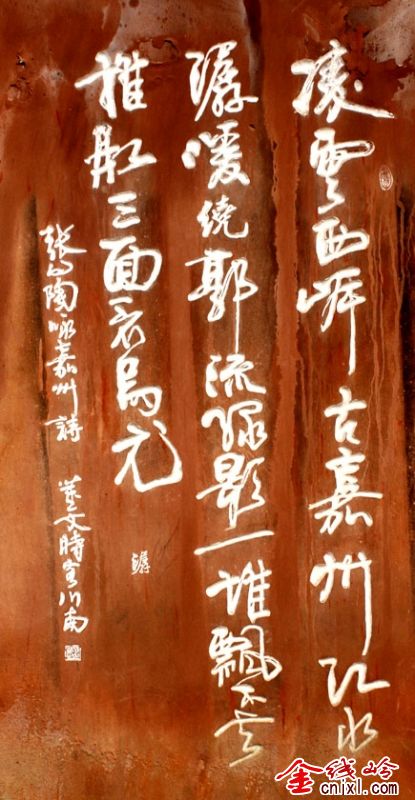 凌雲西岸古嘉州江水
潺湲绕郭流绿影一堆飄不去
推船三面看烏尤
張问陶詠嘉州詩
文時客川南
潺
金线岭
cnjxl.com